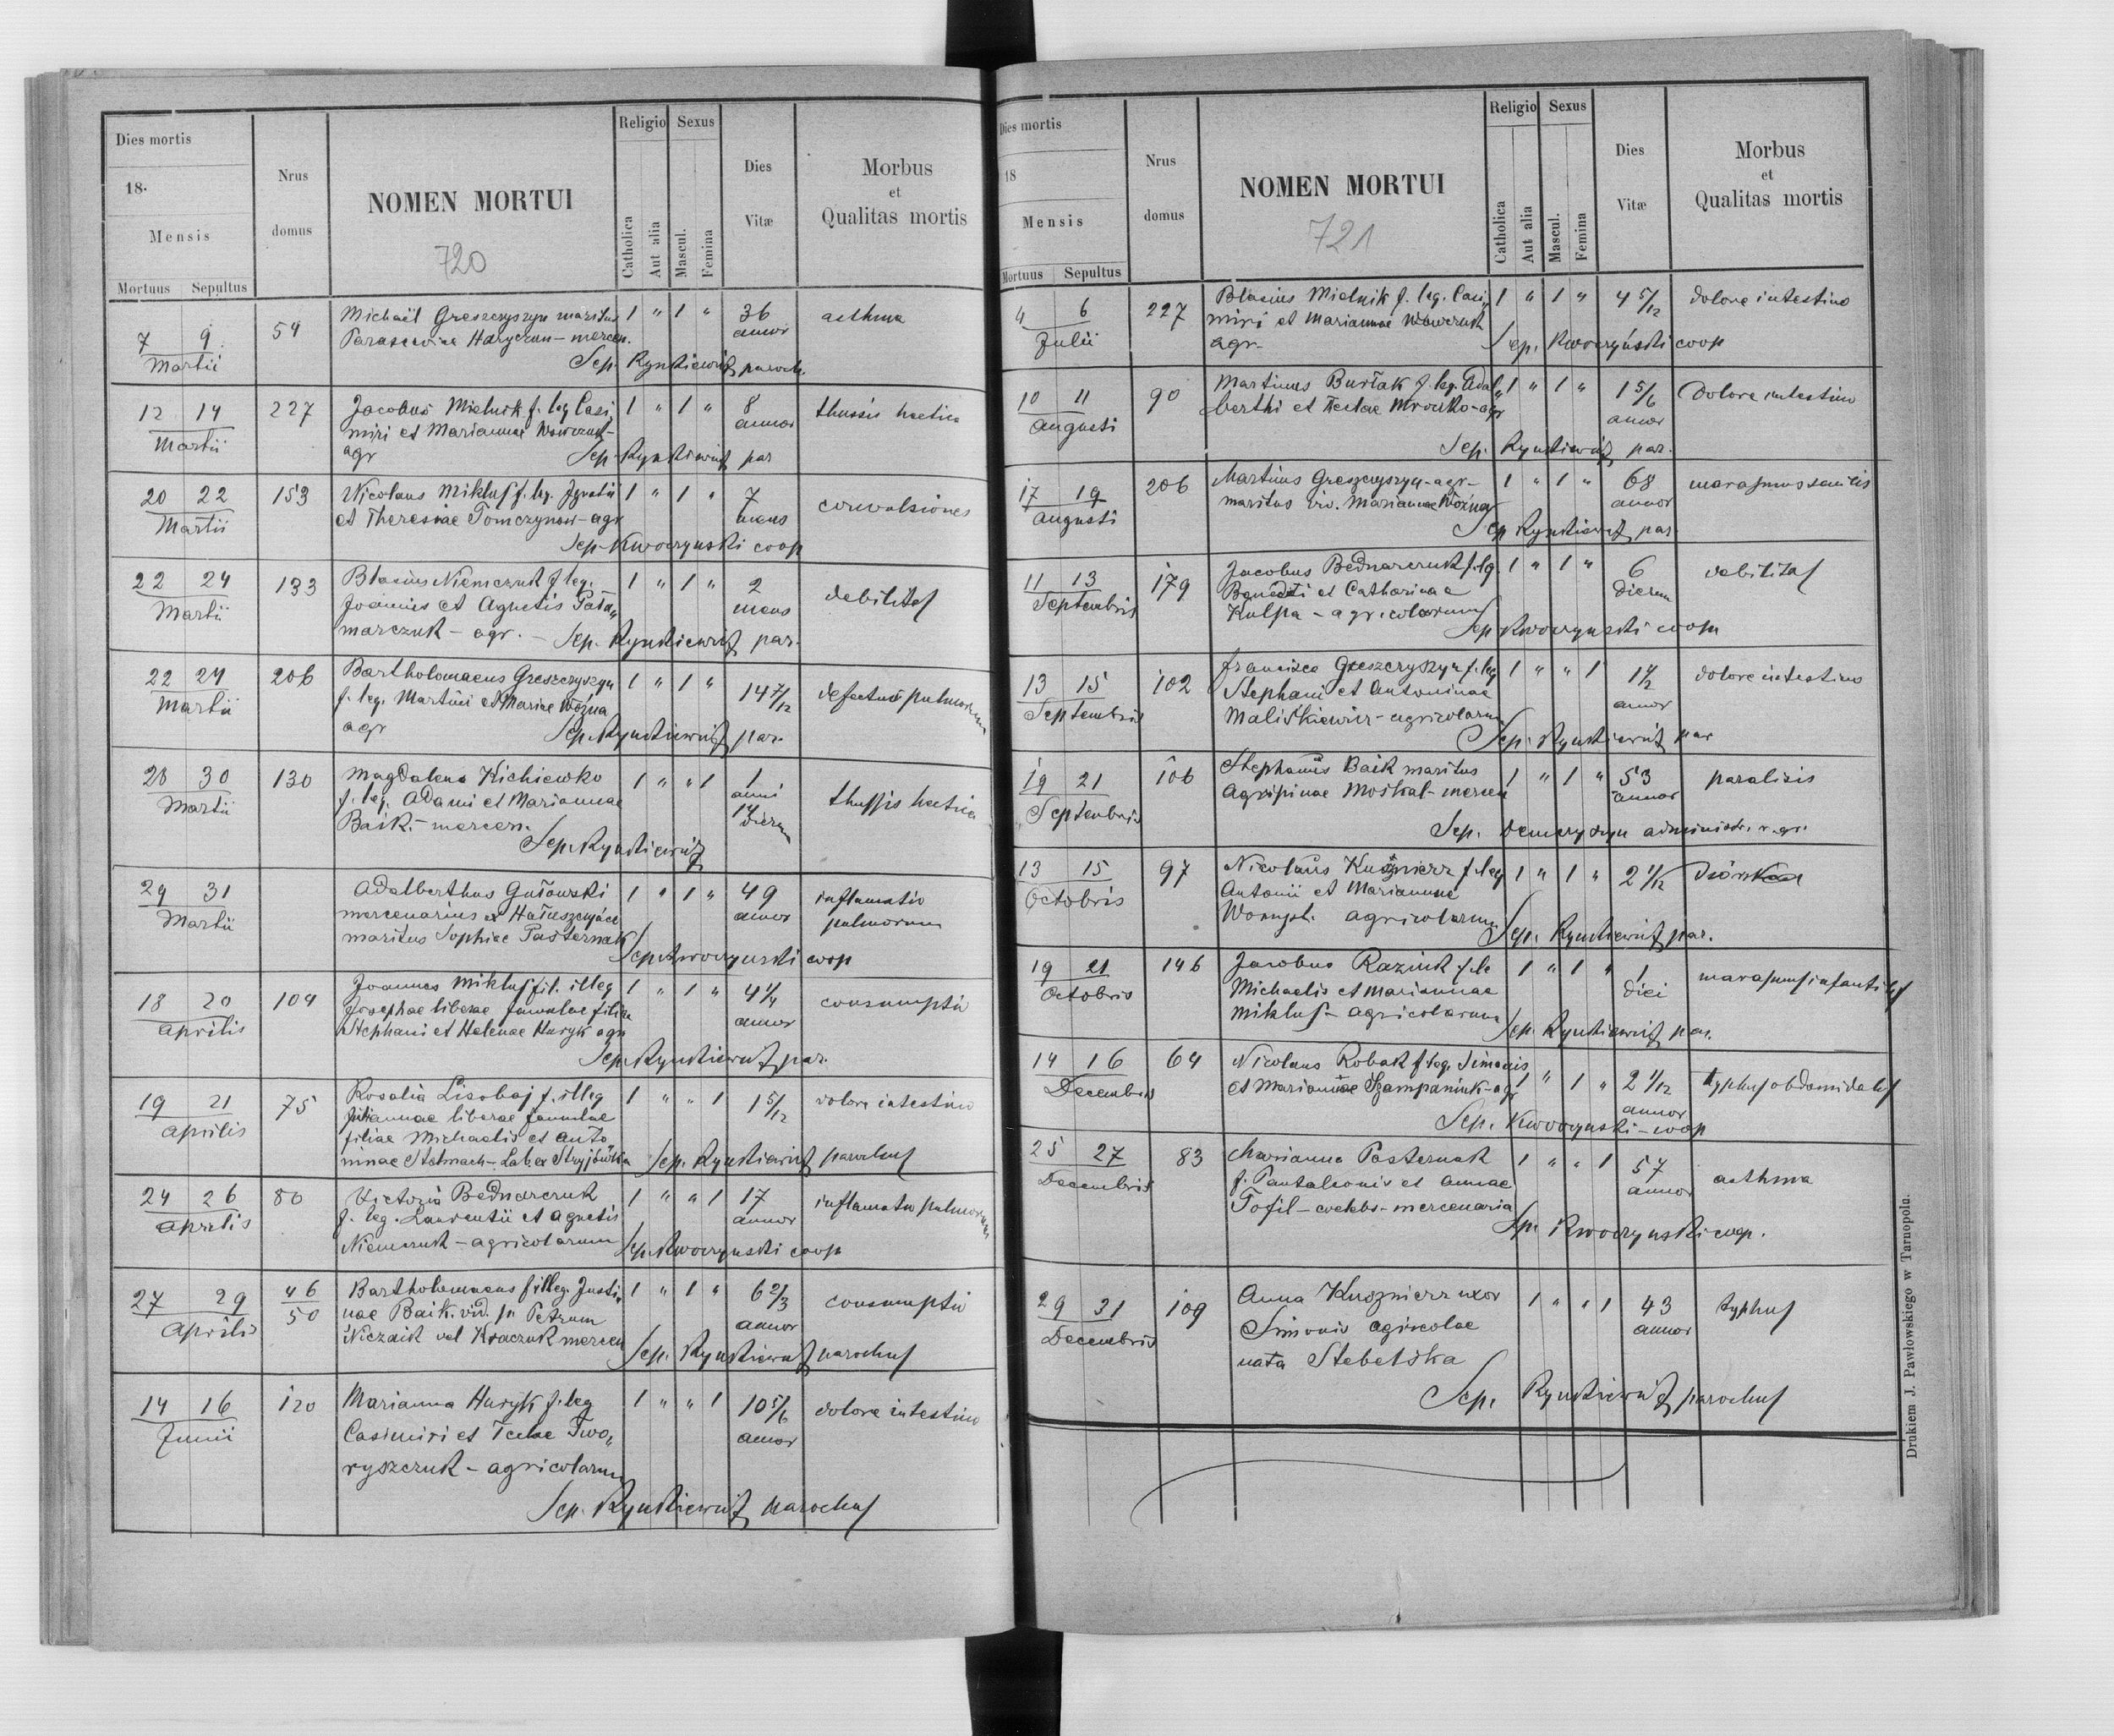 Dies mortis
18·
Mensis
Mortuus Sepultus
Nrus domus
NOMEN MORTUI
720
Religio
Catholica
Aut alia
Sexus
Mascul.
Femina
Dies Vitæ
Morbus
et
Qualitas mortis
7 9 54 Michaël Greszczyszyn maritus 1 " 1 " 36 asthma
Martii Parascevice Haryczun - mercen. annor
Sep. Rynkiewicz paroch.
12 14 227 Jacobus Mielnik f. leg Casi, 1 " 1 " 8 thussis hectica
Martii miri et Mariannae Wowczuk- annor
agr Sep Rynkiewicz par
20 22 153 Nicolaus Miklus f. leg. Ignatii 1 " 1 " 7 convulsiones
Martii et Theresiae Tomczynow - agr mens
Sep. Kwoczynski coop
22 24 133 Blasius Niemczuk f leg. 1 " 1 " 2 debilitas
Martii Joannis et Agnetis Pała„ mens
marczuk - agr. - Sep. Rynkiewicz par.
22 24 206 Bartholomaeus Greszczyszyn 1 " 1 " 14 7/12 defectus pulmorum
Martii f. leg. Martini et Mariae Woźna
agr Sep. Rynkiewicz par.
28 30 130 Magdalena Kichiewko 1 " " 1 1 anni thussis hectica
Martii f. leg. Adami et Mariannae 14 dierum
Baik. - mercen.
Sep. Rynkiewicz
29 31 Adalberthus Gutowski 1 " 1 " 49 inflamatio
Martii mercenarius ex Hałuszczyńce annor pulmorum
maritus Sophiae Pasternak
Sep. Kwoczynski coop
18 20 104 Joannes Miklus fil. illeg 1 " 1 " 4 1/4 consumptio
Aprilis Josephae liberae famulae filiae annor
Stephani et Helenae Huryk agr
Sep. Rynkiewicz par.
19 21 75 Rosalia Lisobaj f. illeg 1 " " 1 1 5/12 dolore intestino
Aprilis Juliannae liberae famulae
filiae Michaelis et Anto
ninae Stelmach - Lab ex Stryjówka Sep. Rynkiewicz parochus
24 26 80 Victoria Bednarczuk 1 " " 1 17 inflamatio pulmorum
Aprilis f. leg. Laurentii et Agnetis annor
Niemczuk - agricolarum Sep. Kwoczynski coop
27 29 46/50 Bartholomaeus f illeg. Justi„ 1 " 1 " 6 2/3 consumptio
Aprilis nae Baik. vid. p Petrum annor
Niczaik vel Kraczuk mercen
Sep. Rynkiewicz parochus
14 16 120 Marianna Huryk f. leg 1 " " 1 10 5/6 dolore intestino
Junii Casimiri et Teclae Two„ annor
ryszczuk - agricolarum
Sep. Rynkiewicz parochus
Dies mortis
18
Mensis
Mortuus Sepultus
Nrus domus
NOMEN MORTUI
721
Religio
Catholica
Aut alia
Sexus
Mascul.
Femina
Dies Vitæ
Morbus
et
Qualitas mortis
4 6 227 Blasius Mielnik f. leg. Casi„ 1 " 1 " 4 5/12 dolore intestino
Julii miri et Mariannae Wowczuk
agr. Sep. Kwoczyński coop
10 11 90 Martinus Burłak f. leg. Adal„ 1 " 1 " 1 5/6 Dolore intestino
Augusti berthi et Teclae Mroczko - agr annor
Sep. Rynkiewicz par.
17 19 206 Martinus Greszczyszyn - agr- 1 " 1 " 68 marasmus senilis
Augusti maritus viv. Mariannae Woźna annor
Sep Rynkiewicz par
11 13 179 Jacobus Bednarczuk f. lg. 1 " 1 " 6 debilitas
Septembris Benedicti et Catharinae dierum
Kulpa - agricolarum
Sep Kwoczynski coop
13 15 102 Francisca Greszczyszyn f. leg 1 " " 1 1 1/2 dolore intestino
Septembris Stephani et Antoninae annor
Maliśkiewicz - agricolarum
Sep. Rynkiewicz par
19 21 106 Stephanus Baik maritus 1 " 1 " 53 paralisis
Septembris Agripinae Moskal - mercen annor
Sep. Demczyszyn administr. r. gr.
13 15 97 Nicolaus Kuśznierz f. leg 1 " 1 " 2 1/12
Octobris Antonii et Mariannae
agricolarum
Sep. Rynkiewicz par.
19 21 146 Jacobus Raziuk f. le 1 " 1 " 1 marasmus infantilis
Octobris Michaelis et Mariannae diei
Miklus - agricolarum
Sep. Rynkiewicz par.
14 16 64 Nicolaus Robak f. leg. Simonis 1 " 1 " 2 1/12 typhus abdomidalis
Decembris et Mariannae Szampaniuk - agr annor
Sep. Kwoczynski - coop
25 27 83 Marianna Pasternak 1 " " 1 57 asthma
Decembris f. Pantaleonis et Annae annor
Tofil - coelebs - mercenaria
Sep. Kwoczynski coop.
29 31 109 Anna Kuoznierz uxor 1 " " 1 43 typhus
Decembris Simonis agricolae annor
nata Stebelska
Sep. Rynkiewicz parochus
Drukiem J. Pawłowskiego w Tarnopolu.